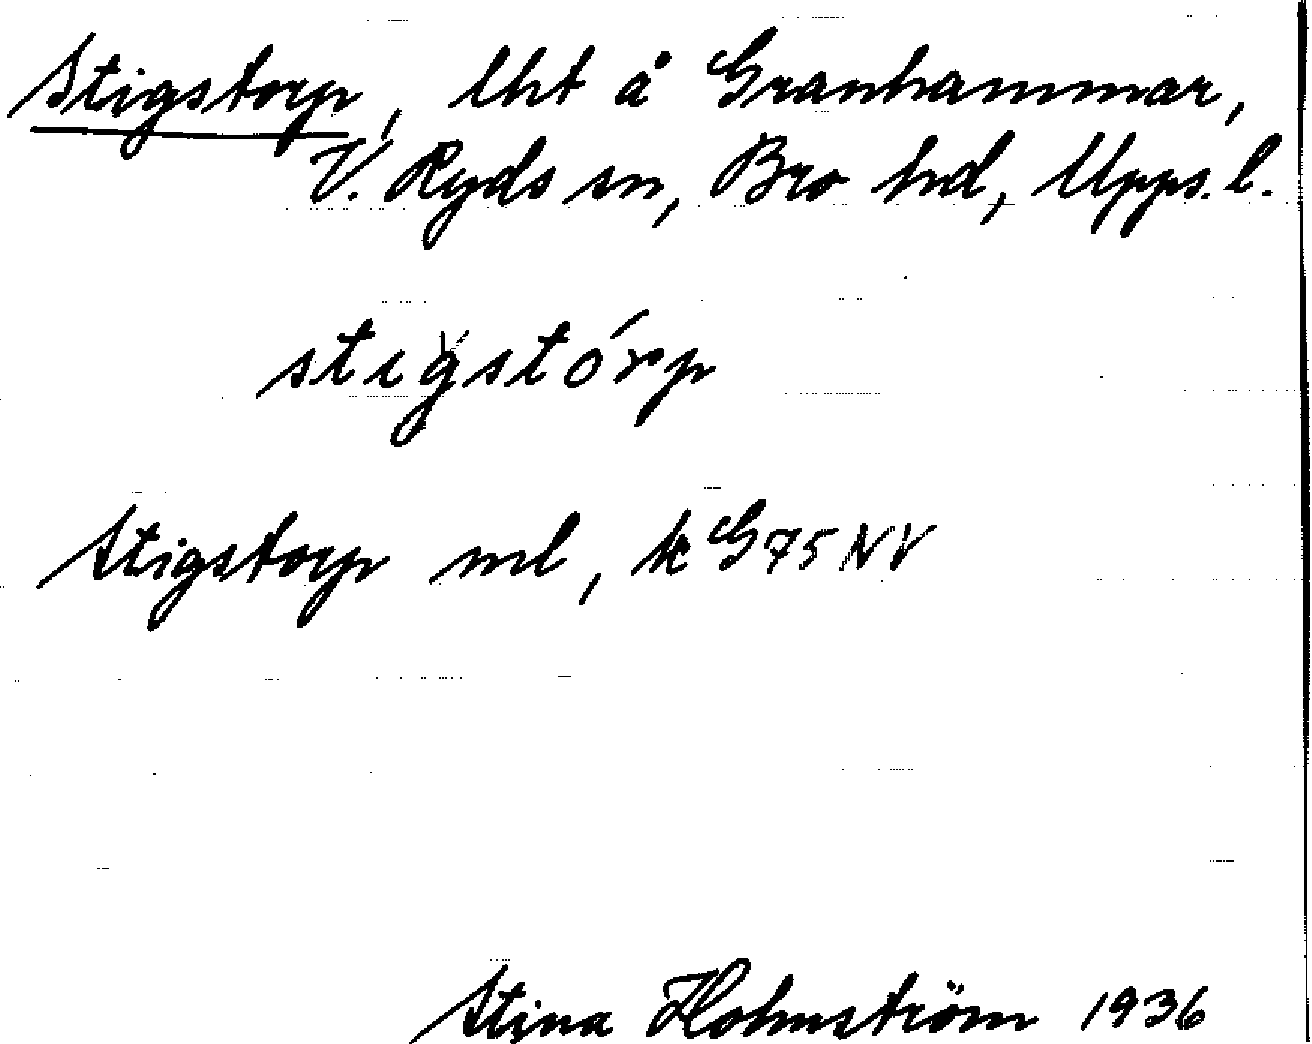 Stigstorp, lht å Granhammar,
V. Ryds sn, Bro hd, Upps. l.
stigstórp
Stigstorp ml, k G 75 NV
Stina Holmström 1936